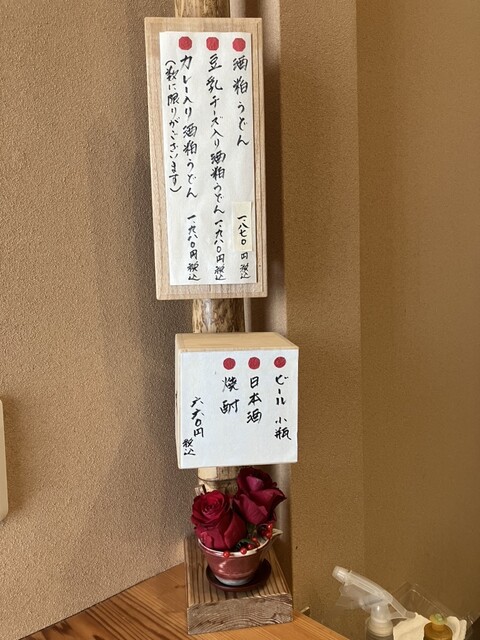 酒粕うどん 一、八七〇円税込
豆乳チーズ入り酒粕うどん 一、九八〇円税込
カレー入り酒粕うどん 一、九八〇円税込
(数に限りがございます)
ビール小瓶
日本酒
焼酎
六六〇円税込